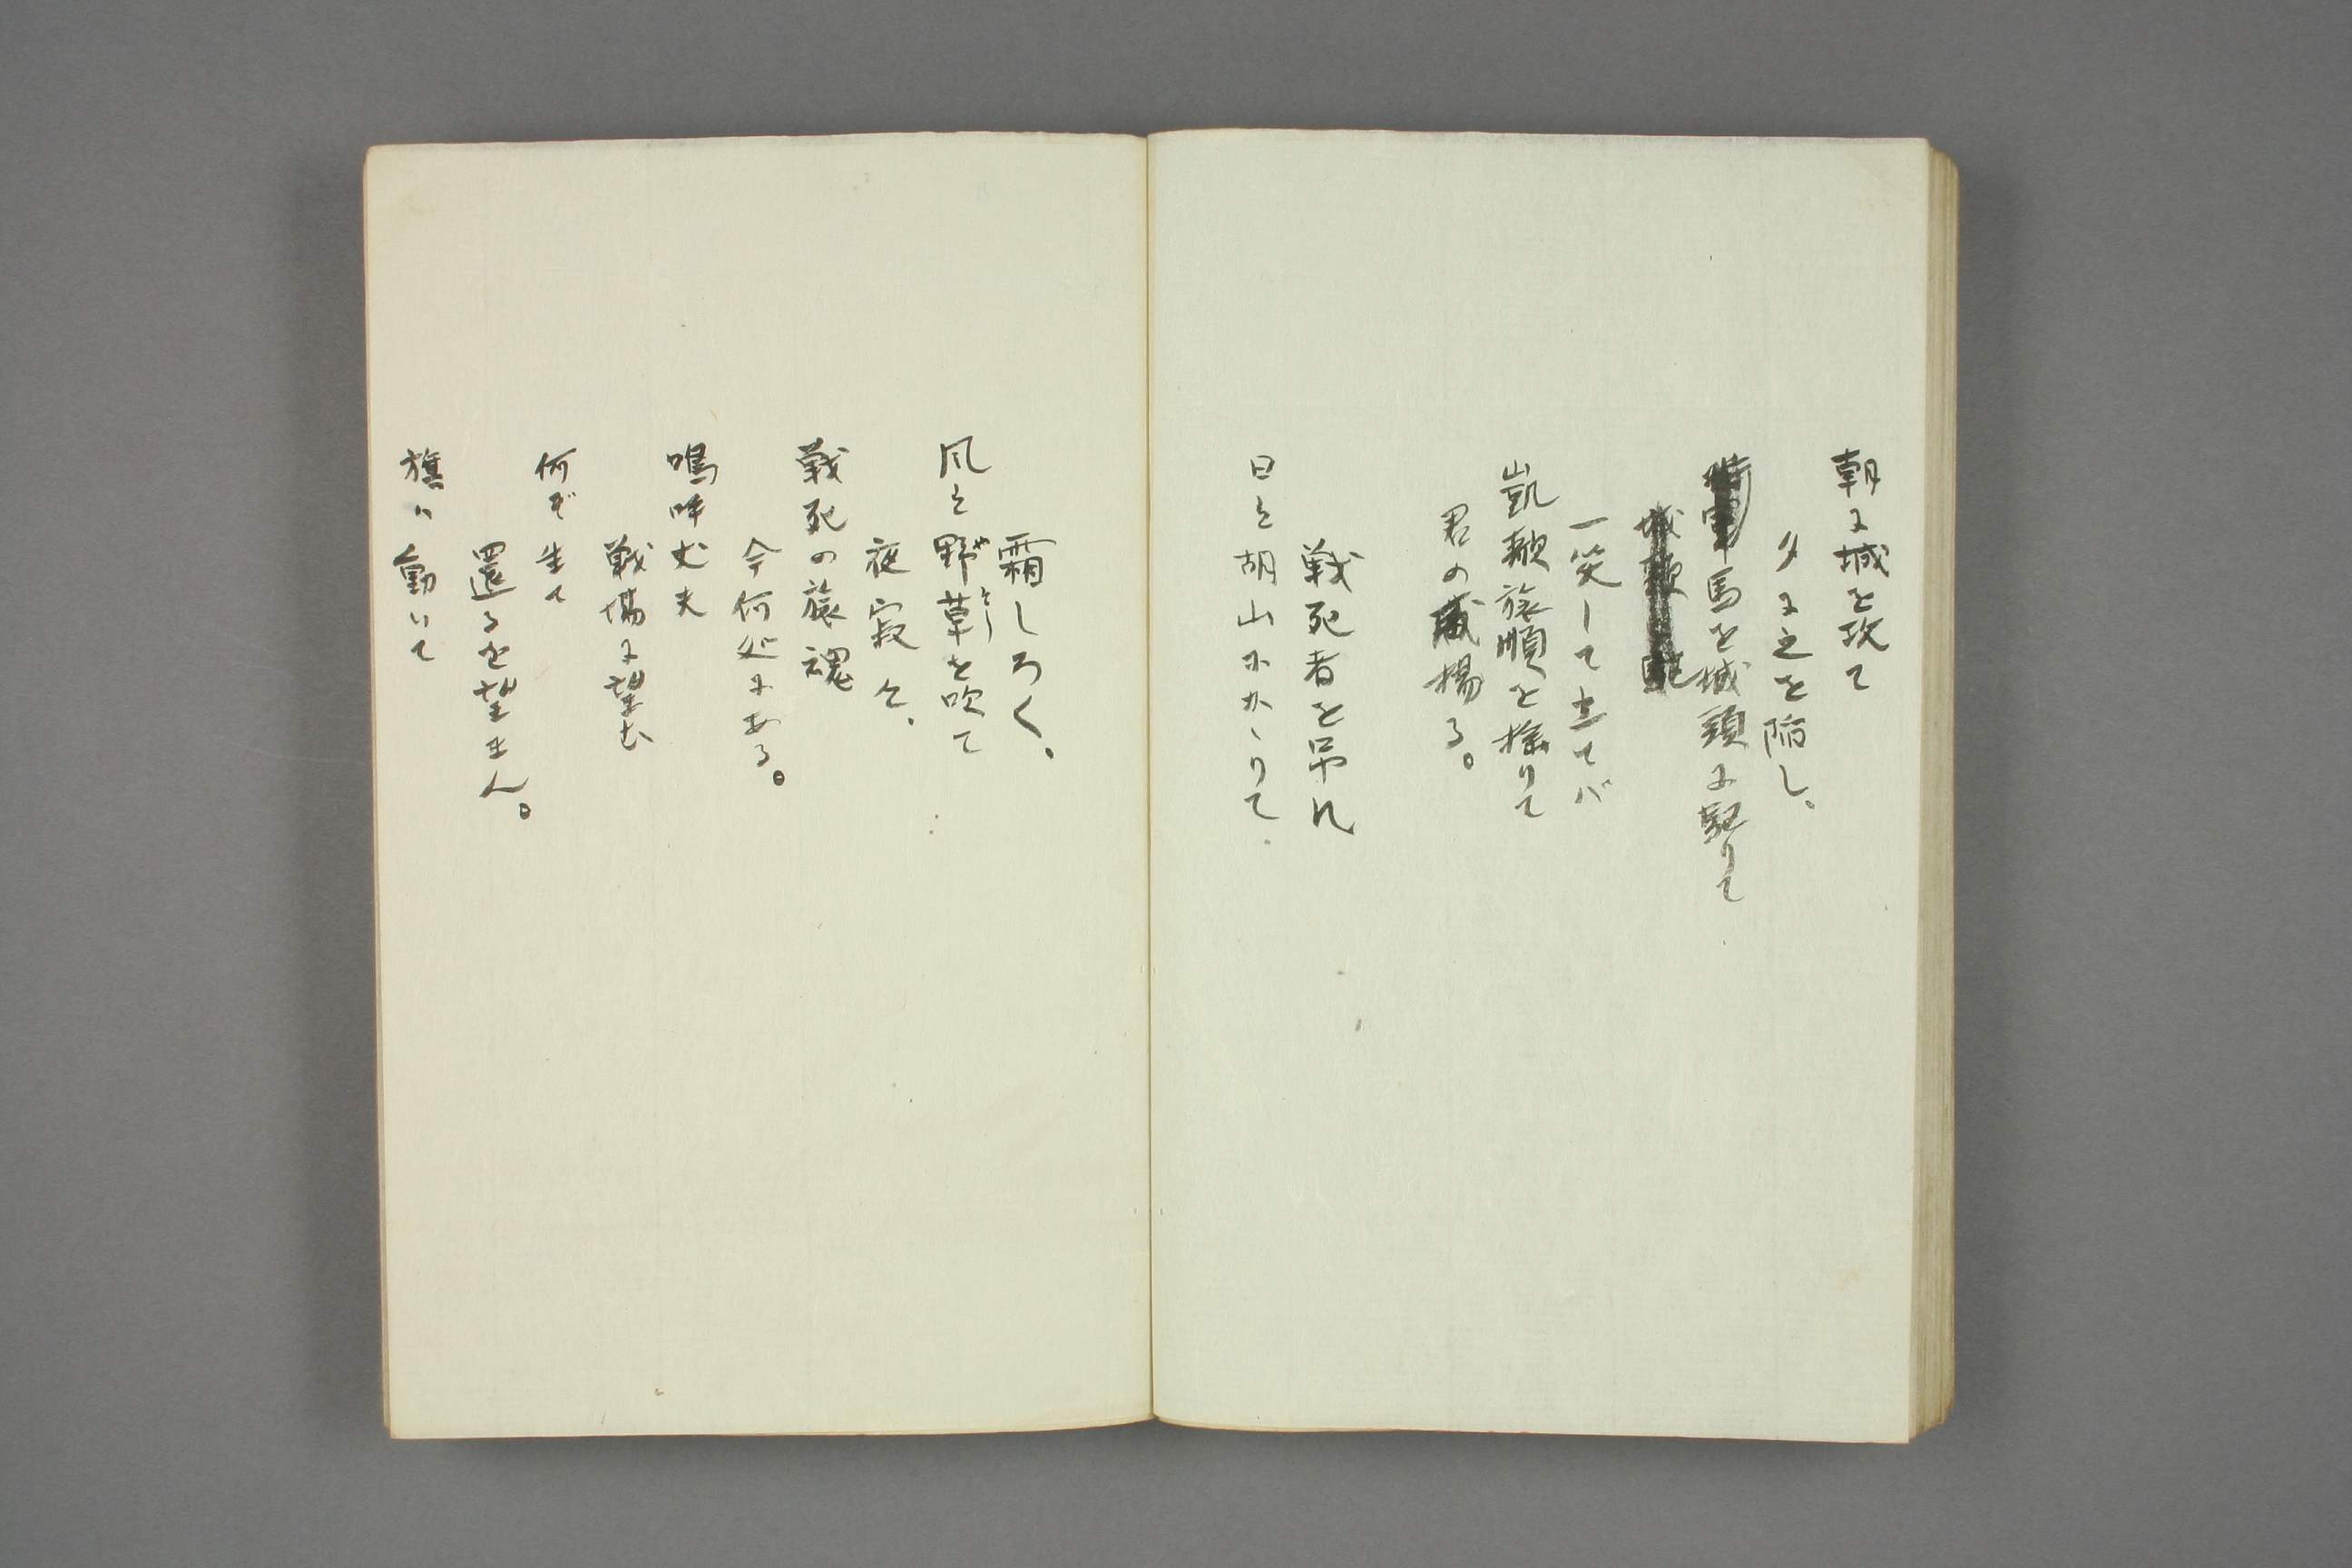 朝に城を攻て
夕に之を陥し。
馬を城頭に駆りて
一笑して立てバ
凱歌旅順を撼りて
君の威揚る。
戦死者を吊れ
日は胡山にかゝりて。
霜しろく。
風は野草を吹て
やそう
夜寂々。
戦死の旅魂
今何処にある。
嗚呼丈夫
戦場に望む
何ぞ生て
還るを望まん。
旗ハ動いて